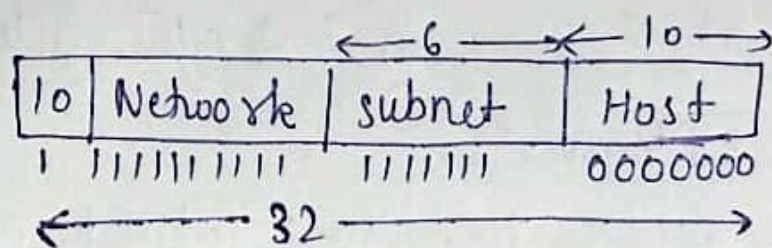 6 10
10 Network subnet Host
1 1111111111 1111111 0000000
32